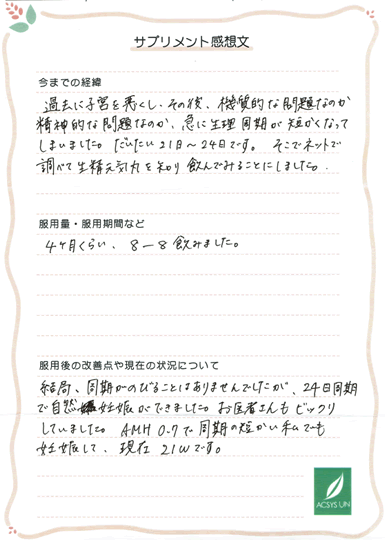 サプリメント感想文
今までの経緯
過去に子宮を悪くし、その後、機質的な問題なのか
精神的な問題なのか、急に生理周期が短かくなって
しまいました。だいたい21日〜24日です。そこでネットで
調べて生精元気丸を知り飲んでみることにしました。
服用量・服用期間など
4ヶ月くらい、8−8飲みました。
服用後の改善点や現在の状況について
結局、周期がのびることはありませんでしたが、24日周期
で自然妊娠ができました。お医者さんもビックリ
していました。AMH 0.7で周期の短かい私でも
妊娠して、現在21Wです。
ACSYS UN